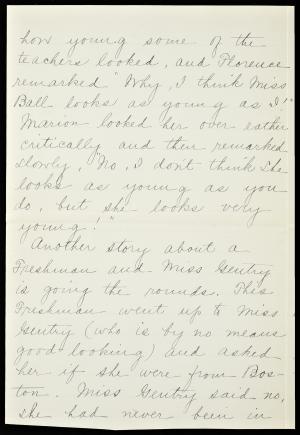 how young some of the
teachers looked, and Florence
remarked "Why, I think Miss
Ball looks as young as I!"
Marion looked her over rather
critically and then remarked
slowly, "No, I don't think she
looks as young as you
do, but she looks very
young!"
Another story about a
Freshman and Miss Gentry
is going the rounds. This
Freshman went up to Miss
Gentry (who is by no means
good-looking) and asked
her if she were from Bos-
ton. Miss Gentry said no,
she had never been in